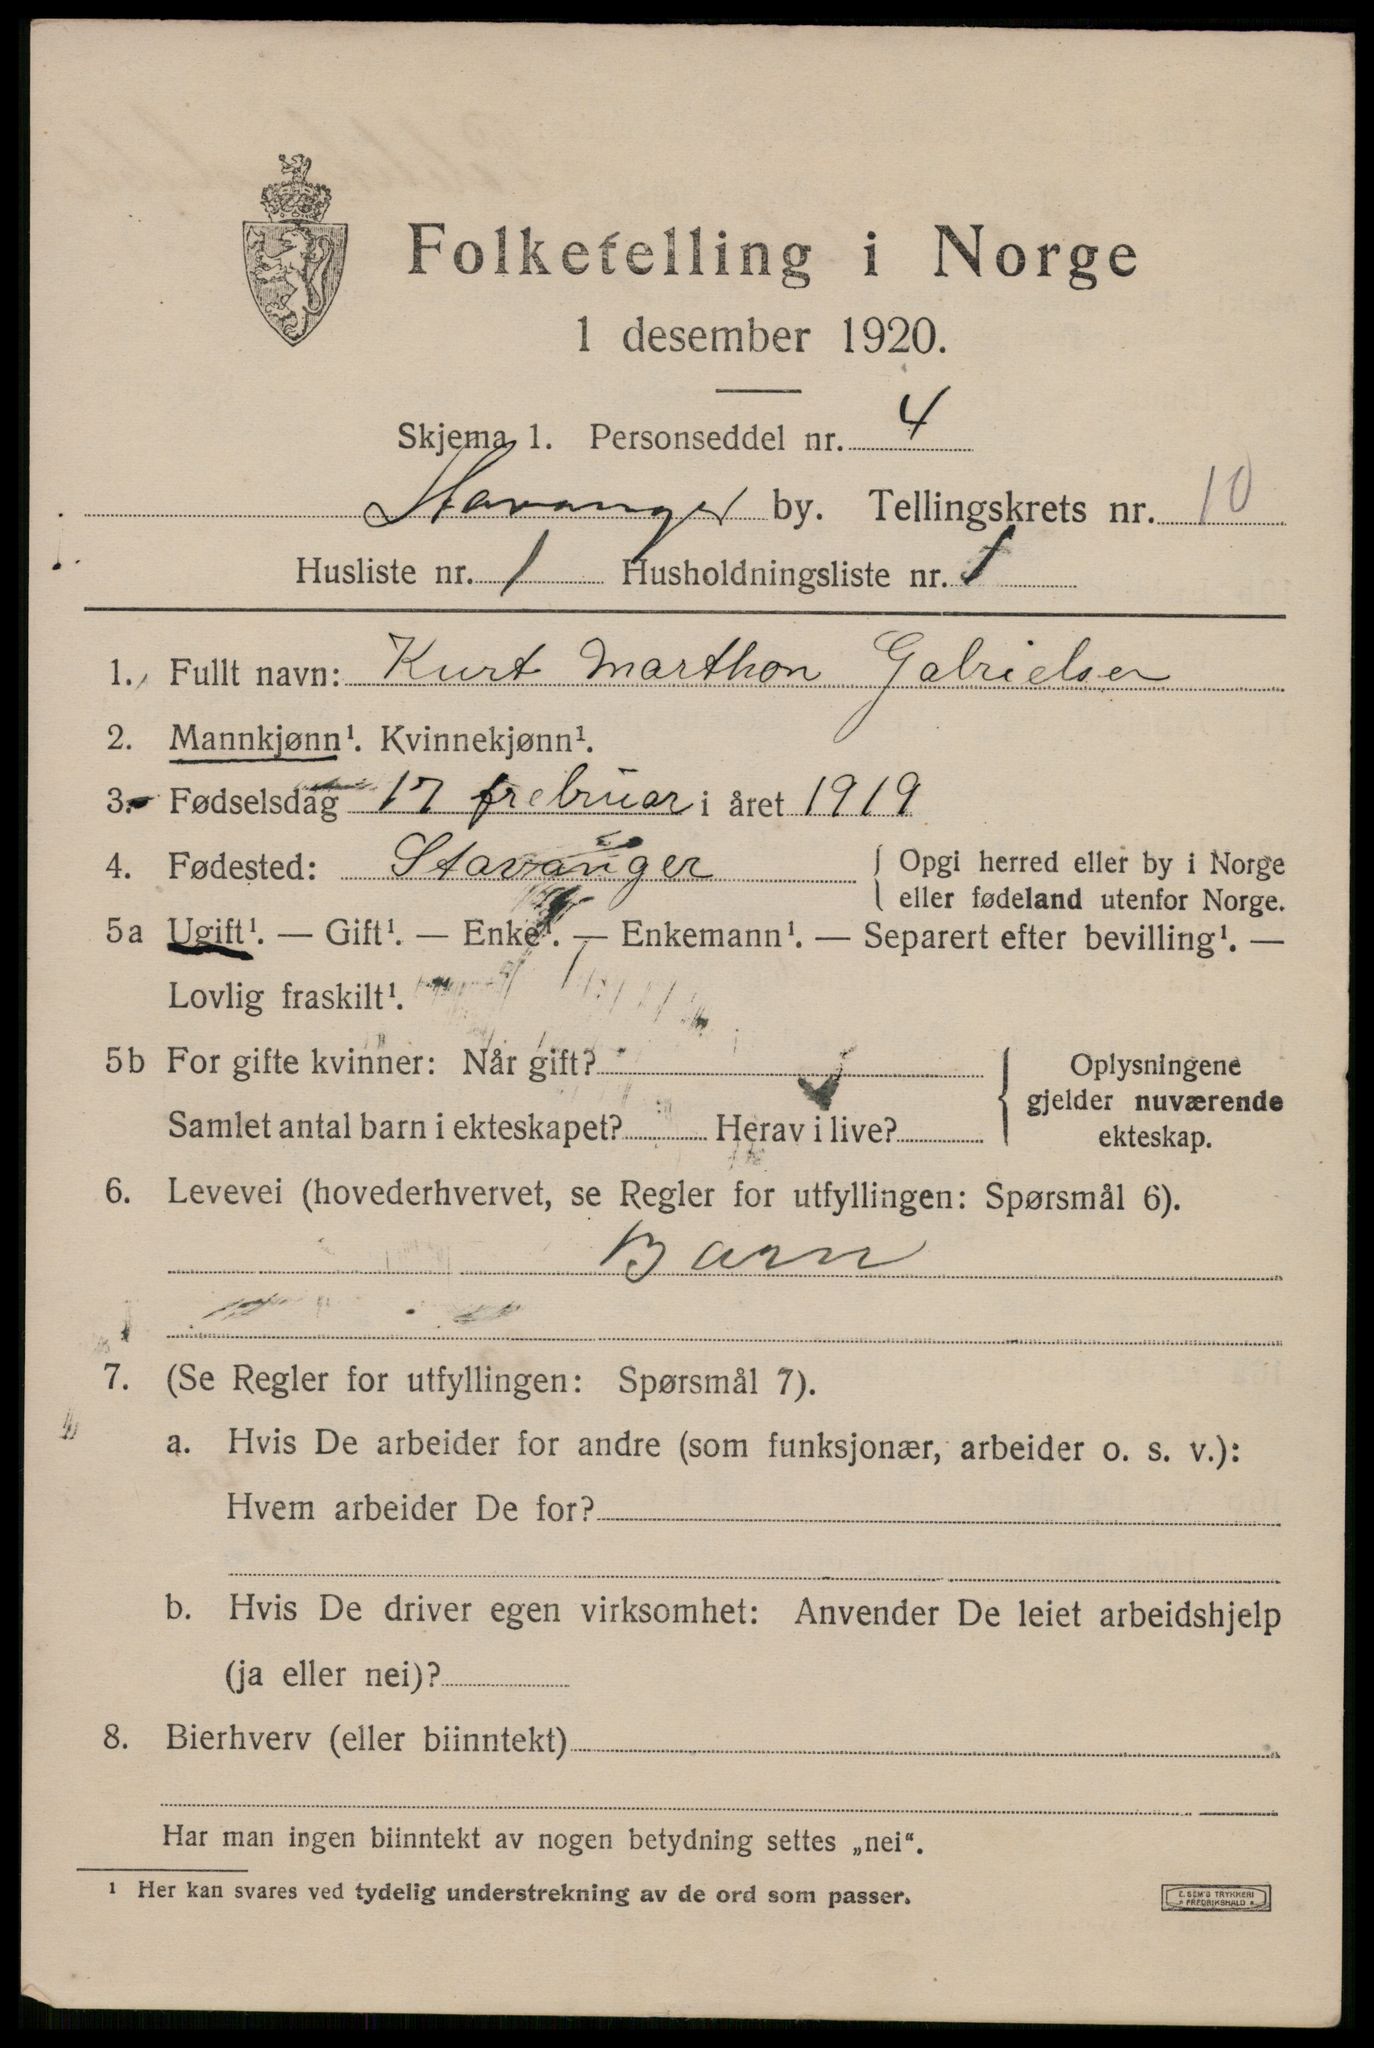 Folketelling i Norge
1 desember 1920.
Skjema 1. Personseddel nr. 4
Stavanger by. Tellingskrets nr. 10
Husliste nr. 1 Husholdningsliste nr. 1
1. Fullt navn: Kurt Marthon Gabrielsen
2. Mannkjønn¹. Kvinnekjønn¹.
3. Fødselsdag 17 frebruar i året 1919
4. Fødested: Stavanger { Opgi herred eller by i Norge
eller fødeland utenfor Norge.
5a Ugift¹. — Gift¹. — Enke¹. — Enkemann¹. — Separert efter bevilling¹. —
Lovlig fraskilt¹.
5b For gifte kvinner: Når gift?
Samlet antal barn i ekteskapet? Herav i live?
Oplysningene
gjelder nuværende
ekteskap.
6. Levevei (hovederhvervet, se Regler for utfyllingen: Spørsmål 6).
Barn
7. (Se Regler for utfyllingen: Spørsmål 7).
a. Hvis De arbeider for andre (som funksjonær, arbeider o. s. v.):
Hvem arbeider De for?
b. Hvis De driver egen virksomhet: Anvender De leiet arbeidshjelp
(ja eller nei)?
8. Bierhverv (eller biinntekt)
Har man ingen biinntekt av nogen betydning settes „nei“.
¹ Her kan svares ved tydelig understrekning av de ord som passer.
E. SEM'S TRYKKERI
FREDRIKSHALD